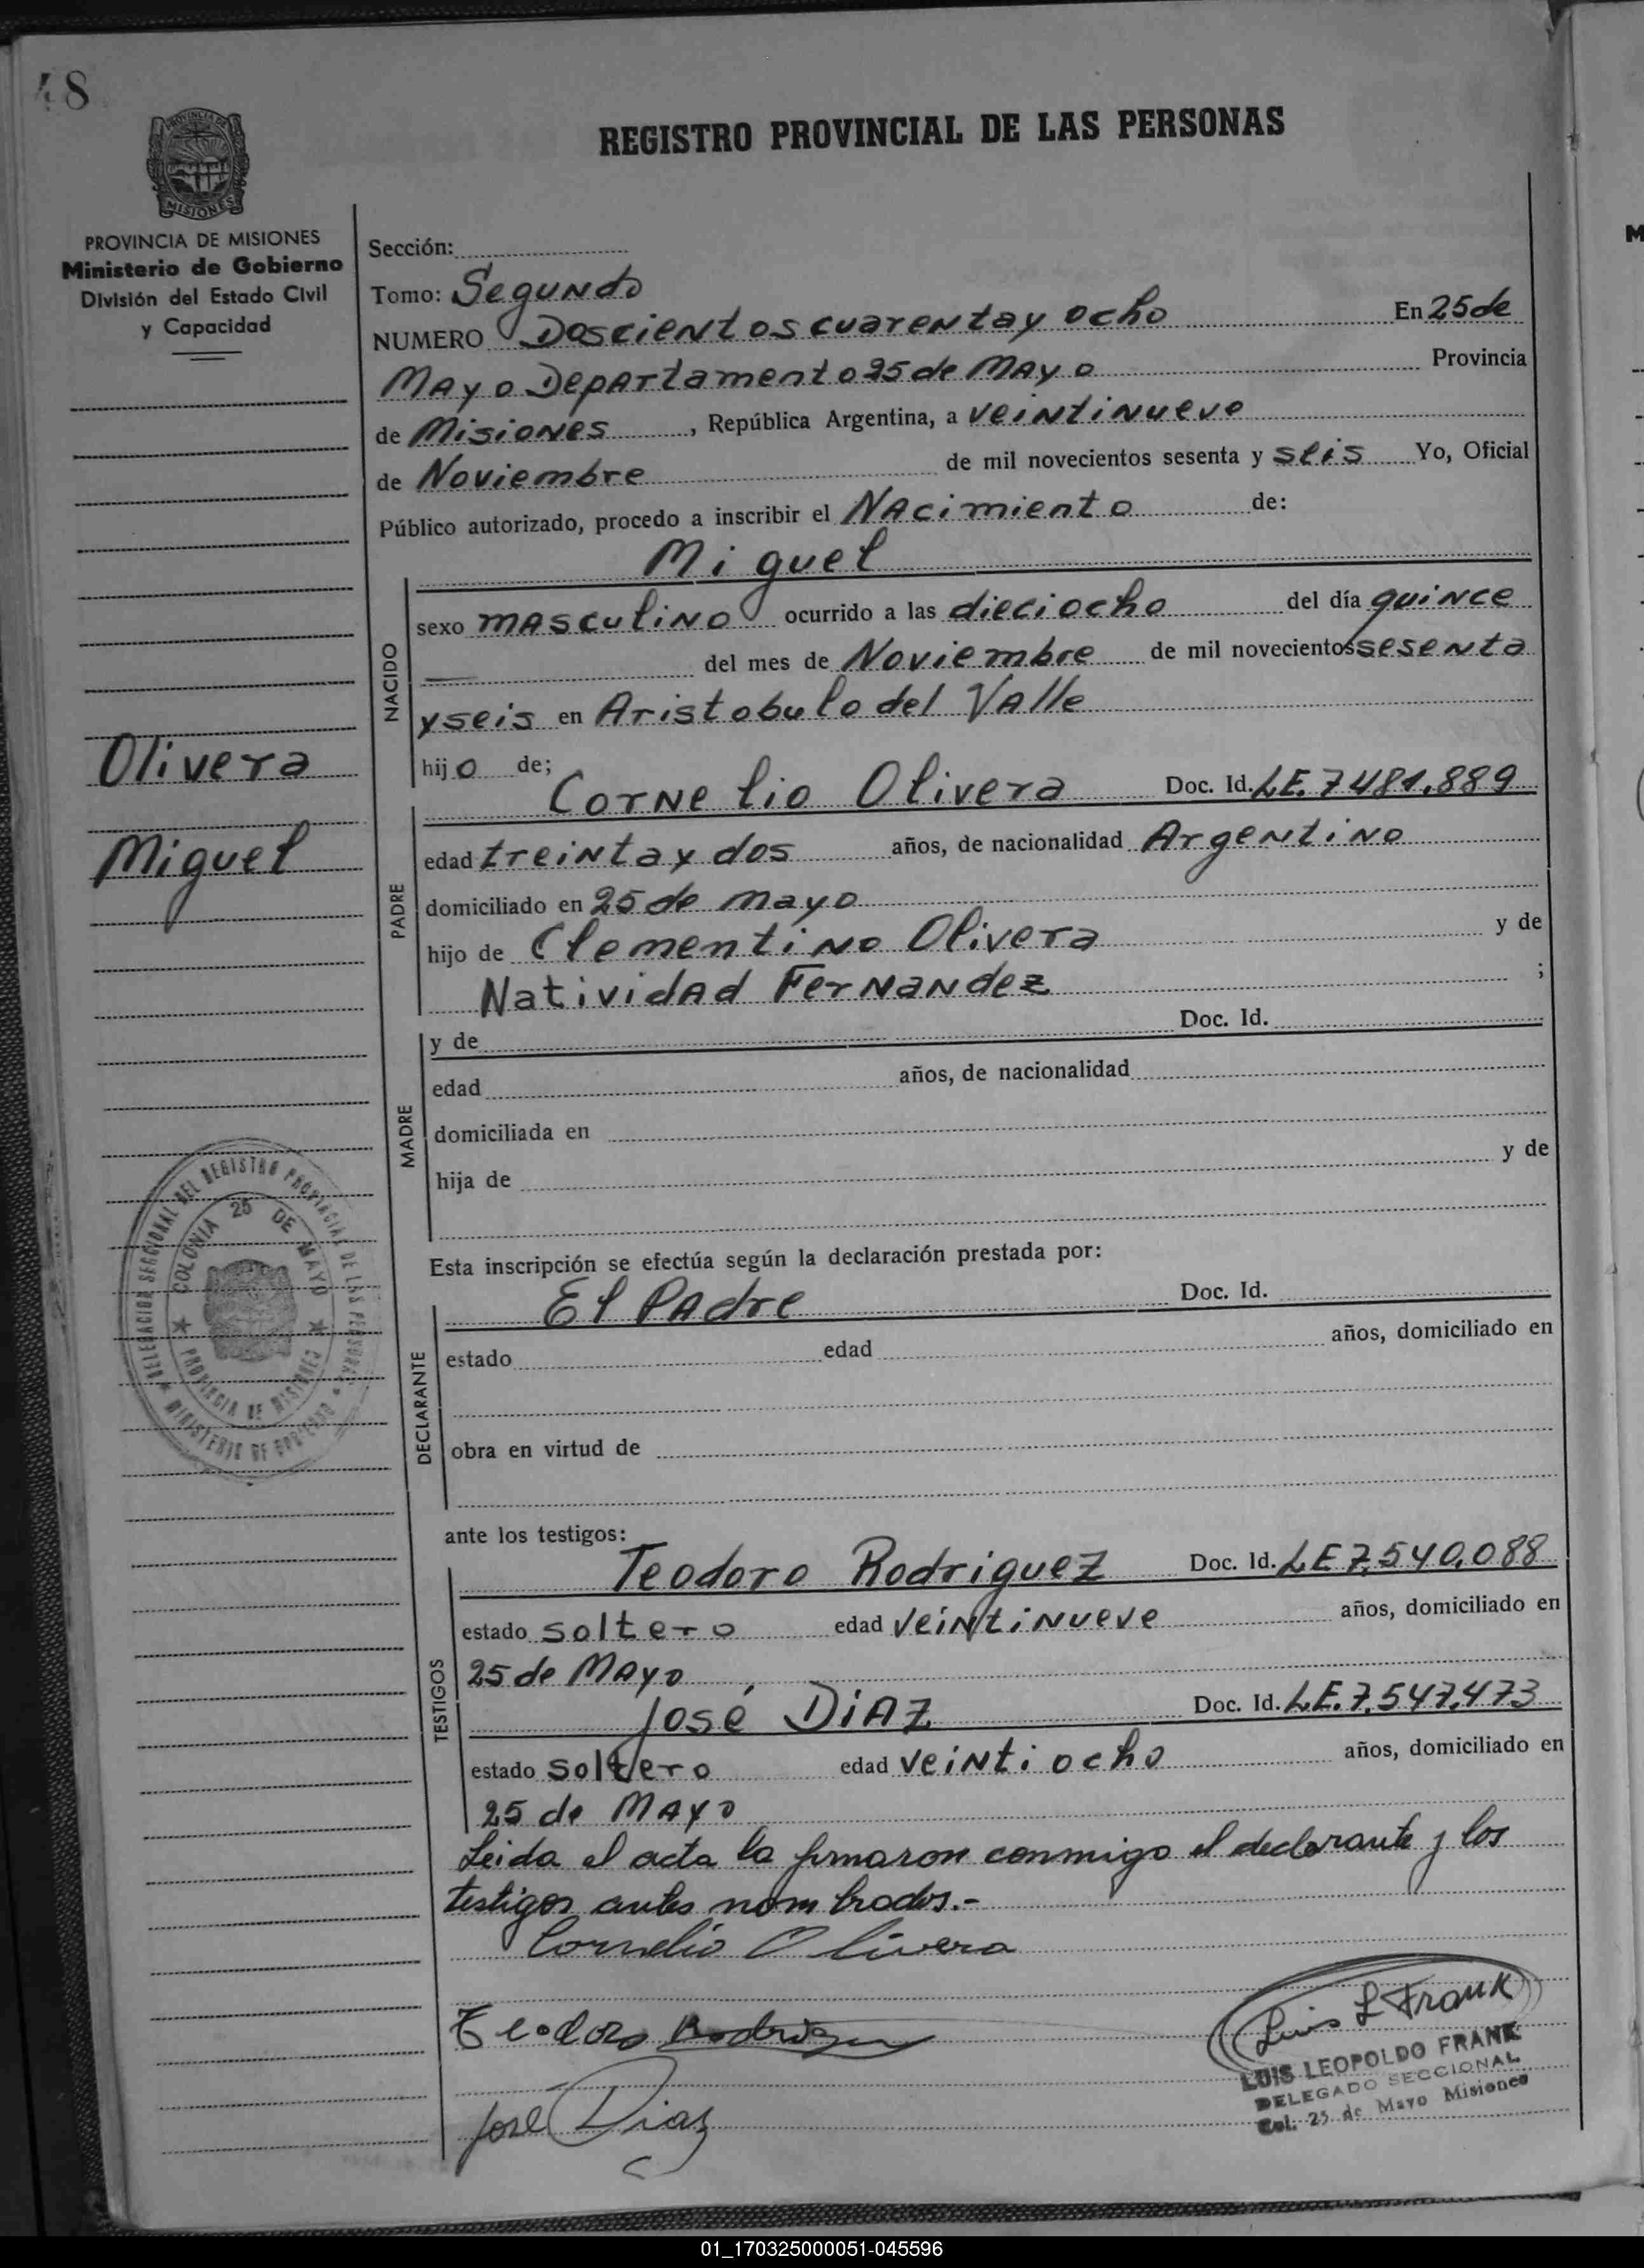 48
REGISTRO PROVINCIAL DE LAS PERSONAS
MISIONES
PROVINCIA DE MISIONES
Ministerio de Gobierno
División del Estado Civil
y Capacidad
Sección:
Tomo: Segundo
NUMERO Doscientos cuarenta y ocho En 25 de
Mayo Departamento 25 de Mayo Provincia
de Misiones, República Argentina, a veintinueve
de Noviembre de mil novecientos sesenta y seis Yo, Oficial
Público autorizado, procedo a inscribir el Nacimiento de:
Miguel
NACIDO
sexo masculino ocurrido a las dieciocho del día quince
del mes de Noviembre de mil novecientos sesenta
y seis en Aristobulo del Valle
Olivera
Miguel
hijo de;
Cornelio Olivera Doc. Id. LE. 7481.889
PADRE
edad treinta y dos años, de nacionalidad Argentino
domiciliado en 25 de mayo
hijo de Clementino Olivera y de
Natividad Fernandez ;
MADRE
y de Doc. Id.
edad años, de nacionalidad
domiciliada en
hija de y de
DELEGACION SECCIONAL DEL REGISTRO PROVINCIAL DE LAS PERSONAS
MINISTERIO DE GOBIERNO
COLONIA 25 DE MAYO
PROVINCIA DE MISIONES
Esta inscripción se efectúa según la declaración prestada por:
El Padre Doc. Id.
DECLARANTE
estado edad años, domiciliado en
obra en virtud de
ante los testigos:
TESTIGOS
Teodoro Rodriguez Doc. Id. LE 7.540.088
estado soltero edad veintinueve años, domiciliado en
25 de Mayo
José Diaz Doc. Id. LE. 7.547.473
estado soltero edad veintiocho años, domiciliado en
25 de Mayo
Leida el acta la firmaron conmigo el declarante y los
testigos antes nombrados.-
Cornelio Olivera
Teodoro Rodriguez
Luis L Frank
LUIS LEOPOLDO FRANK
DELEGADO SECCIONAL
Col. 25 de Mayo Misiones
José Diaz
01_170325000051-045596